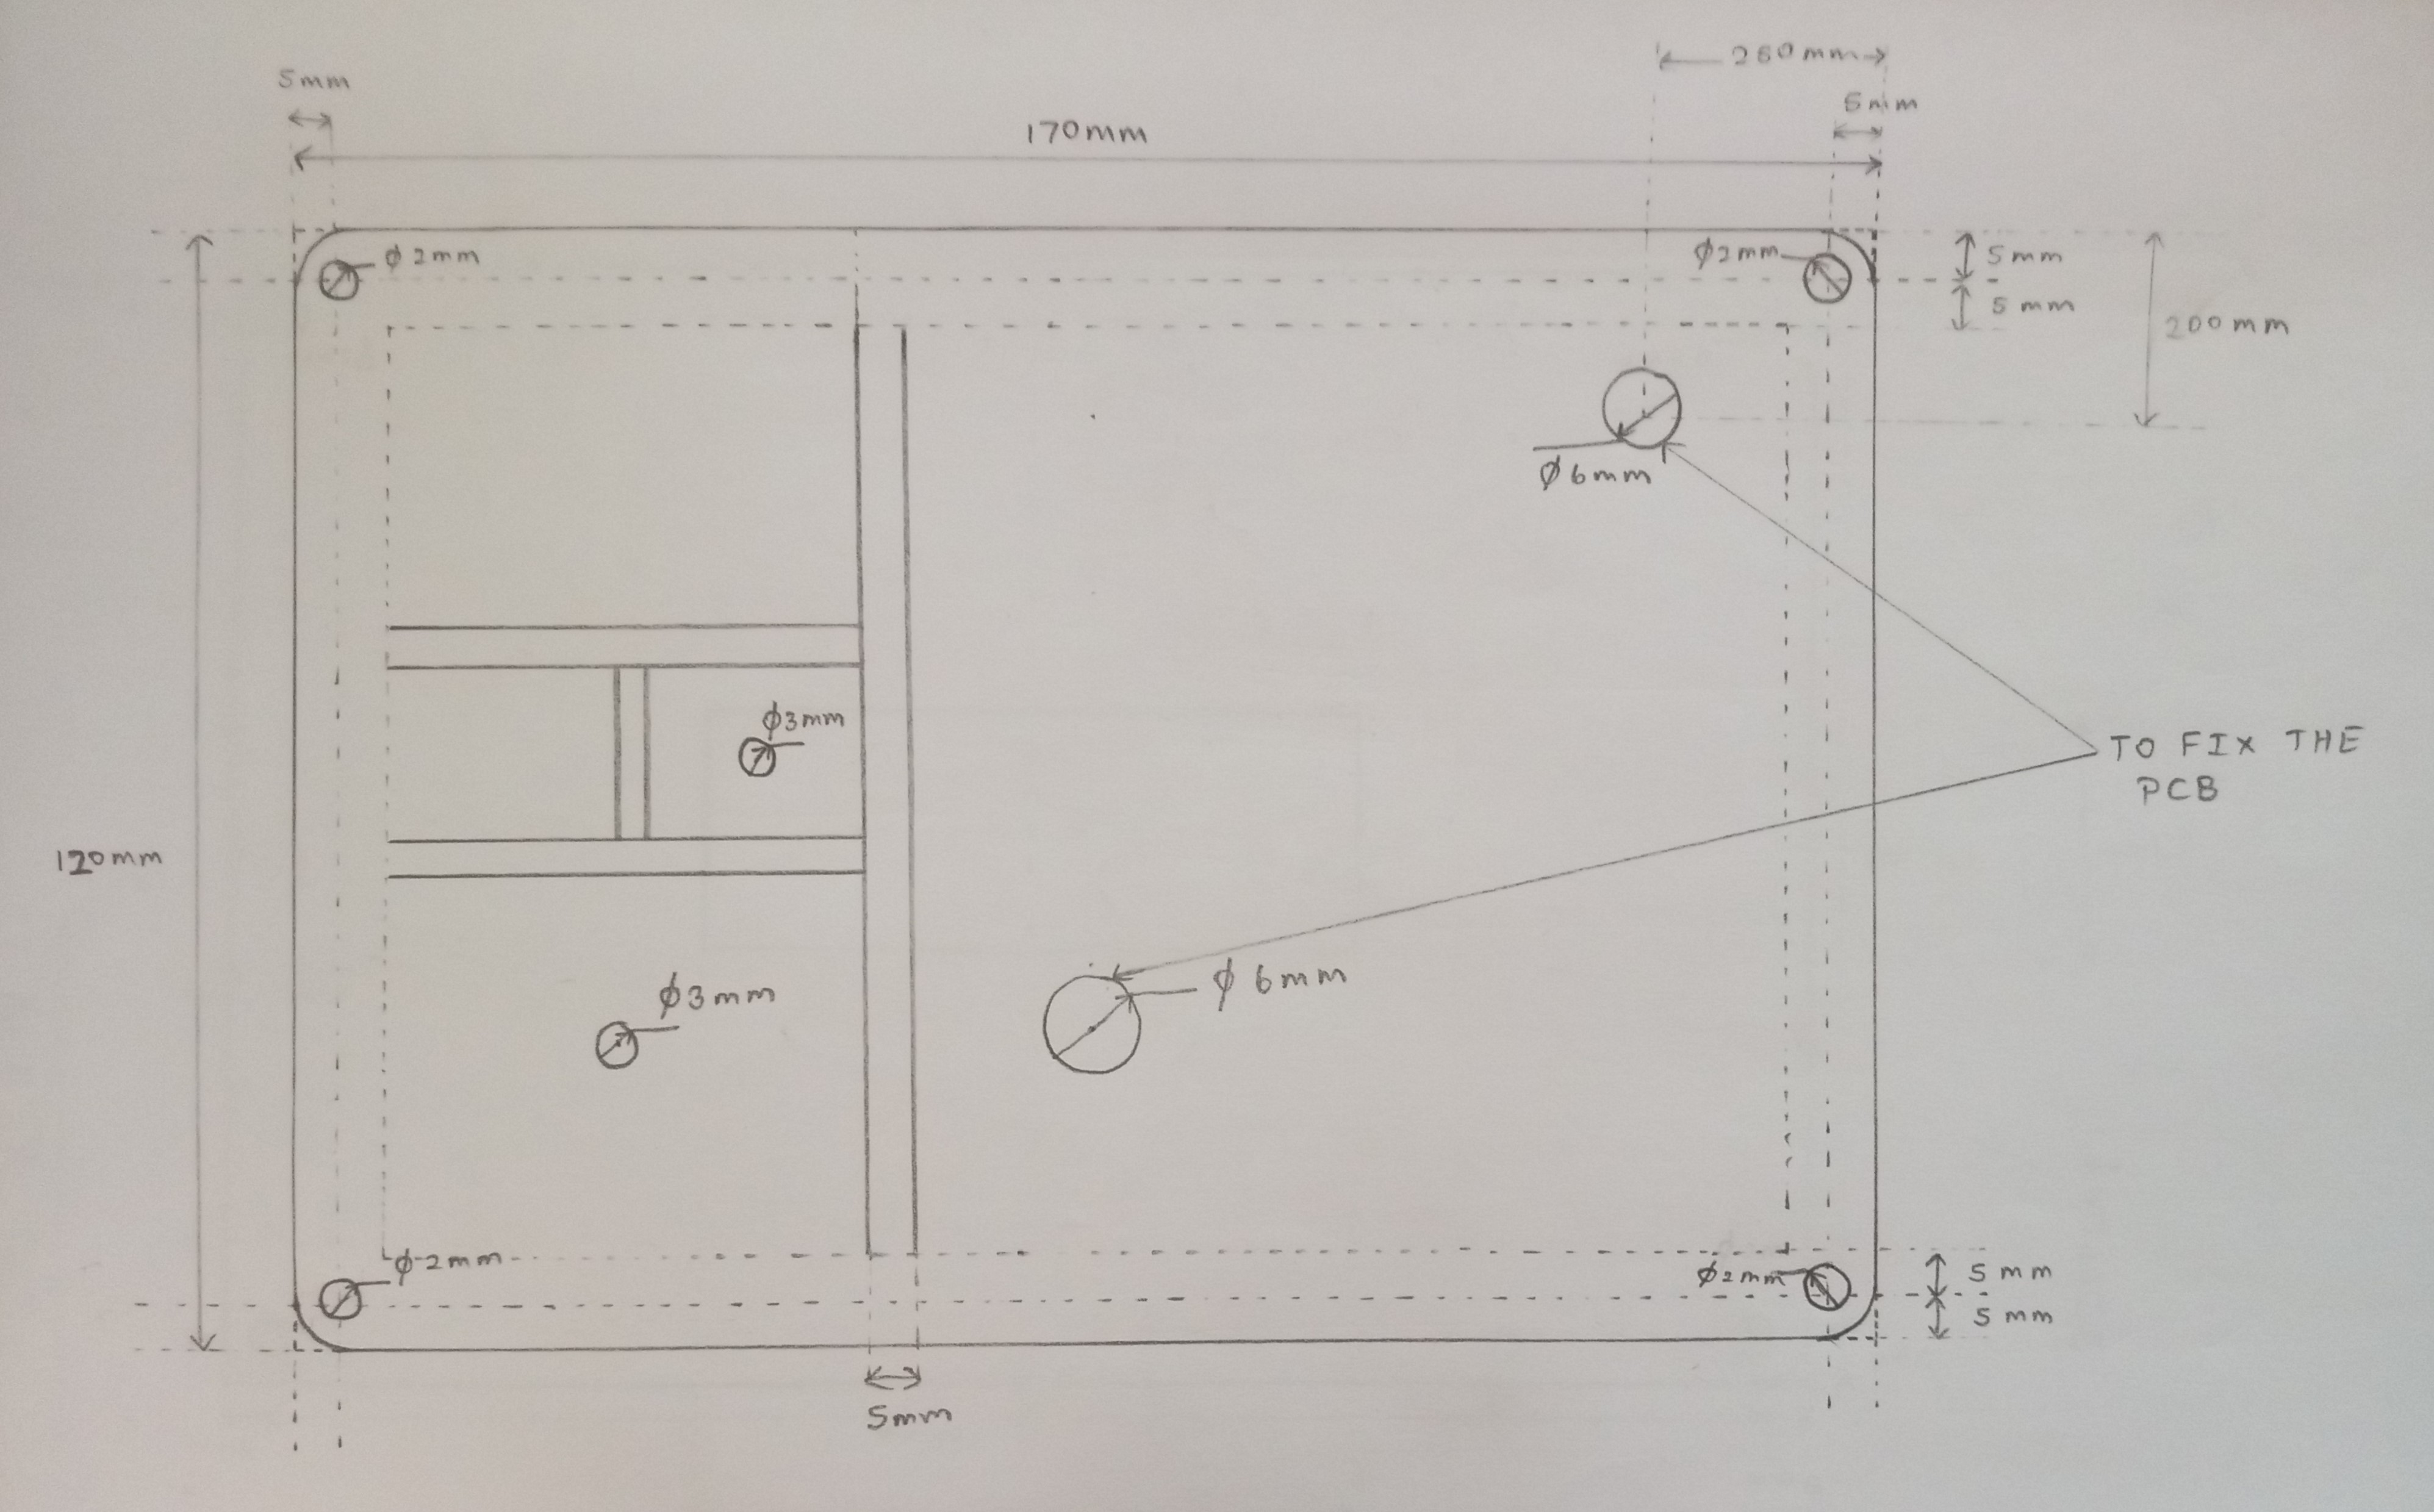 260mm
5mm
5mm
170mm
ϕ2mm
ϕ2mm
5mm
5mm
200mm
ϕ6mm
ϕ3mm
TO FIX THE
PCB
120mm
ϕ3mm
ϕ 6mm
ϕ2mm
ϕ2mm
5mm
5mm
5mm